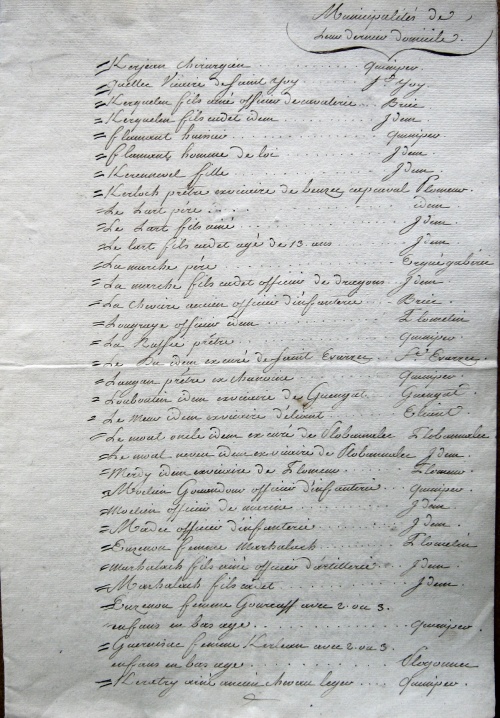 Municipalités de
leur dernier domicile.
= Kerjean chirurgien . . . . . . . . quimper
= Jaëllec Vicaire de Saint Yvy . . . . . . St Yvy
= Kerguelen fils ainé officier de cavalerie . . Briec
= Kerguelen fils cadet idem . . . . . . Jdem
= flamant huissier . . . . . . quimper
= flamant homme de loi . . . . . . Jdem
= Kerennevel fille . . . . . . Jdem
= Kerloch prêtre exvicaire de beuzec capcaval Plomeur
= Le Lart père . . . . idem
= Le Lart fils ainé . . . . . . Jdem
= Le lart fils cadet agé de 13 ans . . . . Jdem
= La marche père . . . . . . Ergué gabéric
= La marche fils cadet officier de dragons. Jdem
= La ancien officier d'infanterie . . Briec
= officier idem . . . . . . Plomelin
= La Raffe prêtre . . . . . . quimper
= Le Du idem excuré de Saint Evarzec . . St Evarzec
= Laugan prêtre ex chanoine . . . . quimper
= Louboutin idem exvicaire de Guengat. Guéngat
= Le Meur idem exvicaire d'élient . . . Elient
= Le moal oncle idem ex curé de Plobannalec Plobannalec
= Le moal neveu idem exvicaire de Plobannalec Jdem
= Merdy idem exvicaire de Plomeur . . . Plomeur
= Moelien Gouandour officier d'infanterie . . quimper
= Moelien officier de marine . . . . Jdem
= Madec officier d'infanterie . . . . Jdem
= Euzenou femme Marhalach . . . . Plomelin
= Marhalach fils ainé officier d'artillerie . . Jdem
= Marhalach fils cadet . . . . . . Jdem
= Euzenou femme Gourcuff avec 2 ou 3.
enfans en bas age . . . . . . quimper
= Guernisac femme Kerlean avec 2 ou 3.
enfans en bas age . . . . . . Plogonnec
= Keratry ainé ancien chevau leger . . . . Quimper